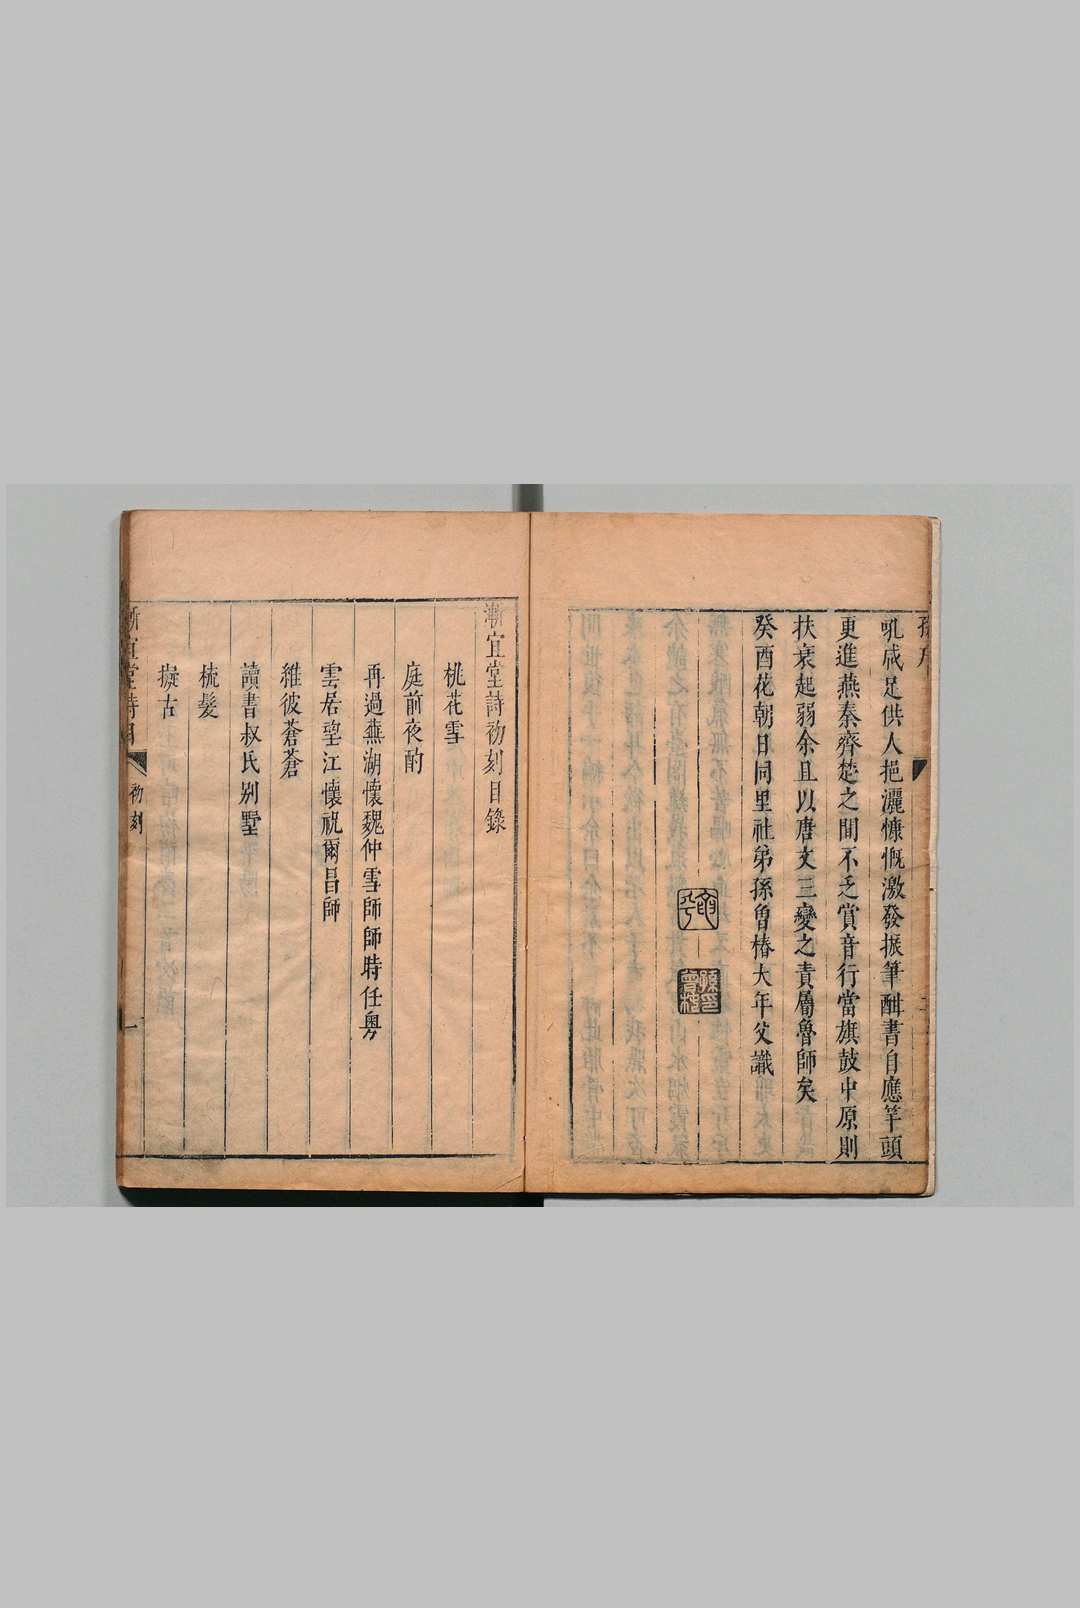 吼咸足供人挹灑慷慨激發振筆酣書自應竿頭
更進燕秦齊楚之間不乏賞音行當旗鼓中原則
扶衰起弱余且以唐文三變之責屬魯師矣
癸酉花朝日同里社弟孫魯椿大年父識
漸宜堂詩初刻目錄
桃花雪
庭前夜酌
再過蕪湖懷魏仲雪師師時任粵
雲居望江懷祝爾昌師
維彼蒼蒼
讀書叔氏別墅
梳髮
擬古
漸宜堂詩目 初刻 一